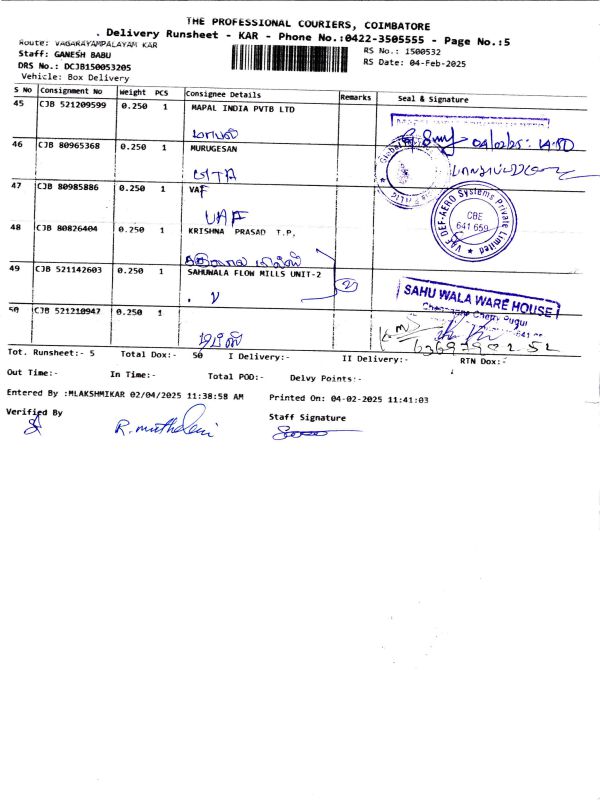 THE PROFESSIONAL COURIERS, COIMBATORE
Delivery Runsheet - KAR - Phone No.:0422-3505555 - Page No.:5
Route: VAGARAYAMPALAYAM KAR
RS No.: 1500532
Staff: GANESH BABU
RS Date: 04-Feb-2025
DRS No.: DCJB150053205
Vehicle: Box Delivery
S No Consignment No Weight PCS Consignee Details Remarks Seal & Signature
45 CJB 521209599 0.250 1 MAPAL INDIA PVTB LTD
மாபல்
04/02/25: 14:50
46 CJB 80965368 0.250 1 MURUGESAN
47 CJB 80985886 0.250 1 VAF
VAF
VAF DEF-AERO Systems Private Limited
CBE
641 659
48 CJB 80826404 0.250 1 KRISHNA PRASAD T.P,
49 CJB 521142603 0.250 1 SAHUWALA FLOW MILLS UNIT-2
2
SAHU WALA WARE HOUSE
50 CJB 521210947 0.250 1
Tot. Runsheet:- 5 Total Dox:- 50 I Delivery:- II Delivery:- RTN Dox:-
Out Time:- In Time:- Total POD:- Delvy Points:-
Entered By :MLAKSHMIKAR 02/04/2025 11:38:58 AM Printed On: 04-02-2025 11:41:03
Verified By Staff Signature